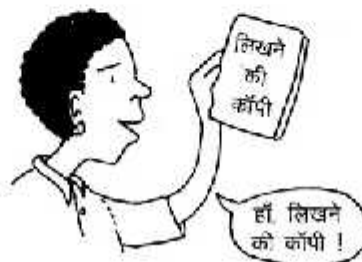 लिखने
की
कॉपी
हाँ, लिखने
की कॉपी !